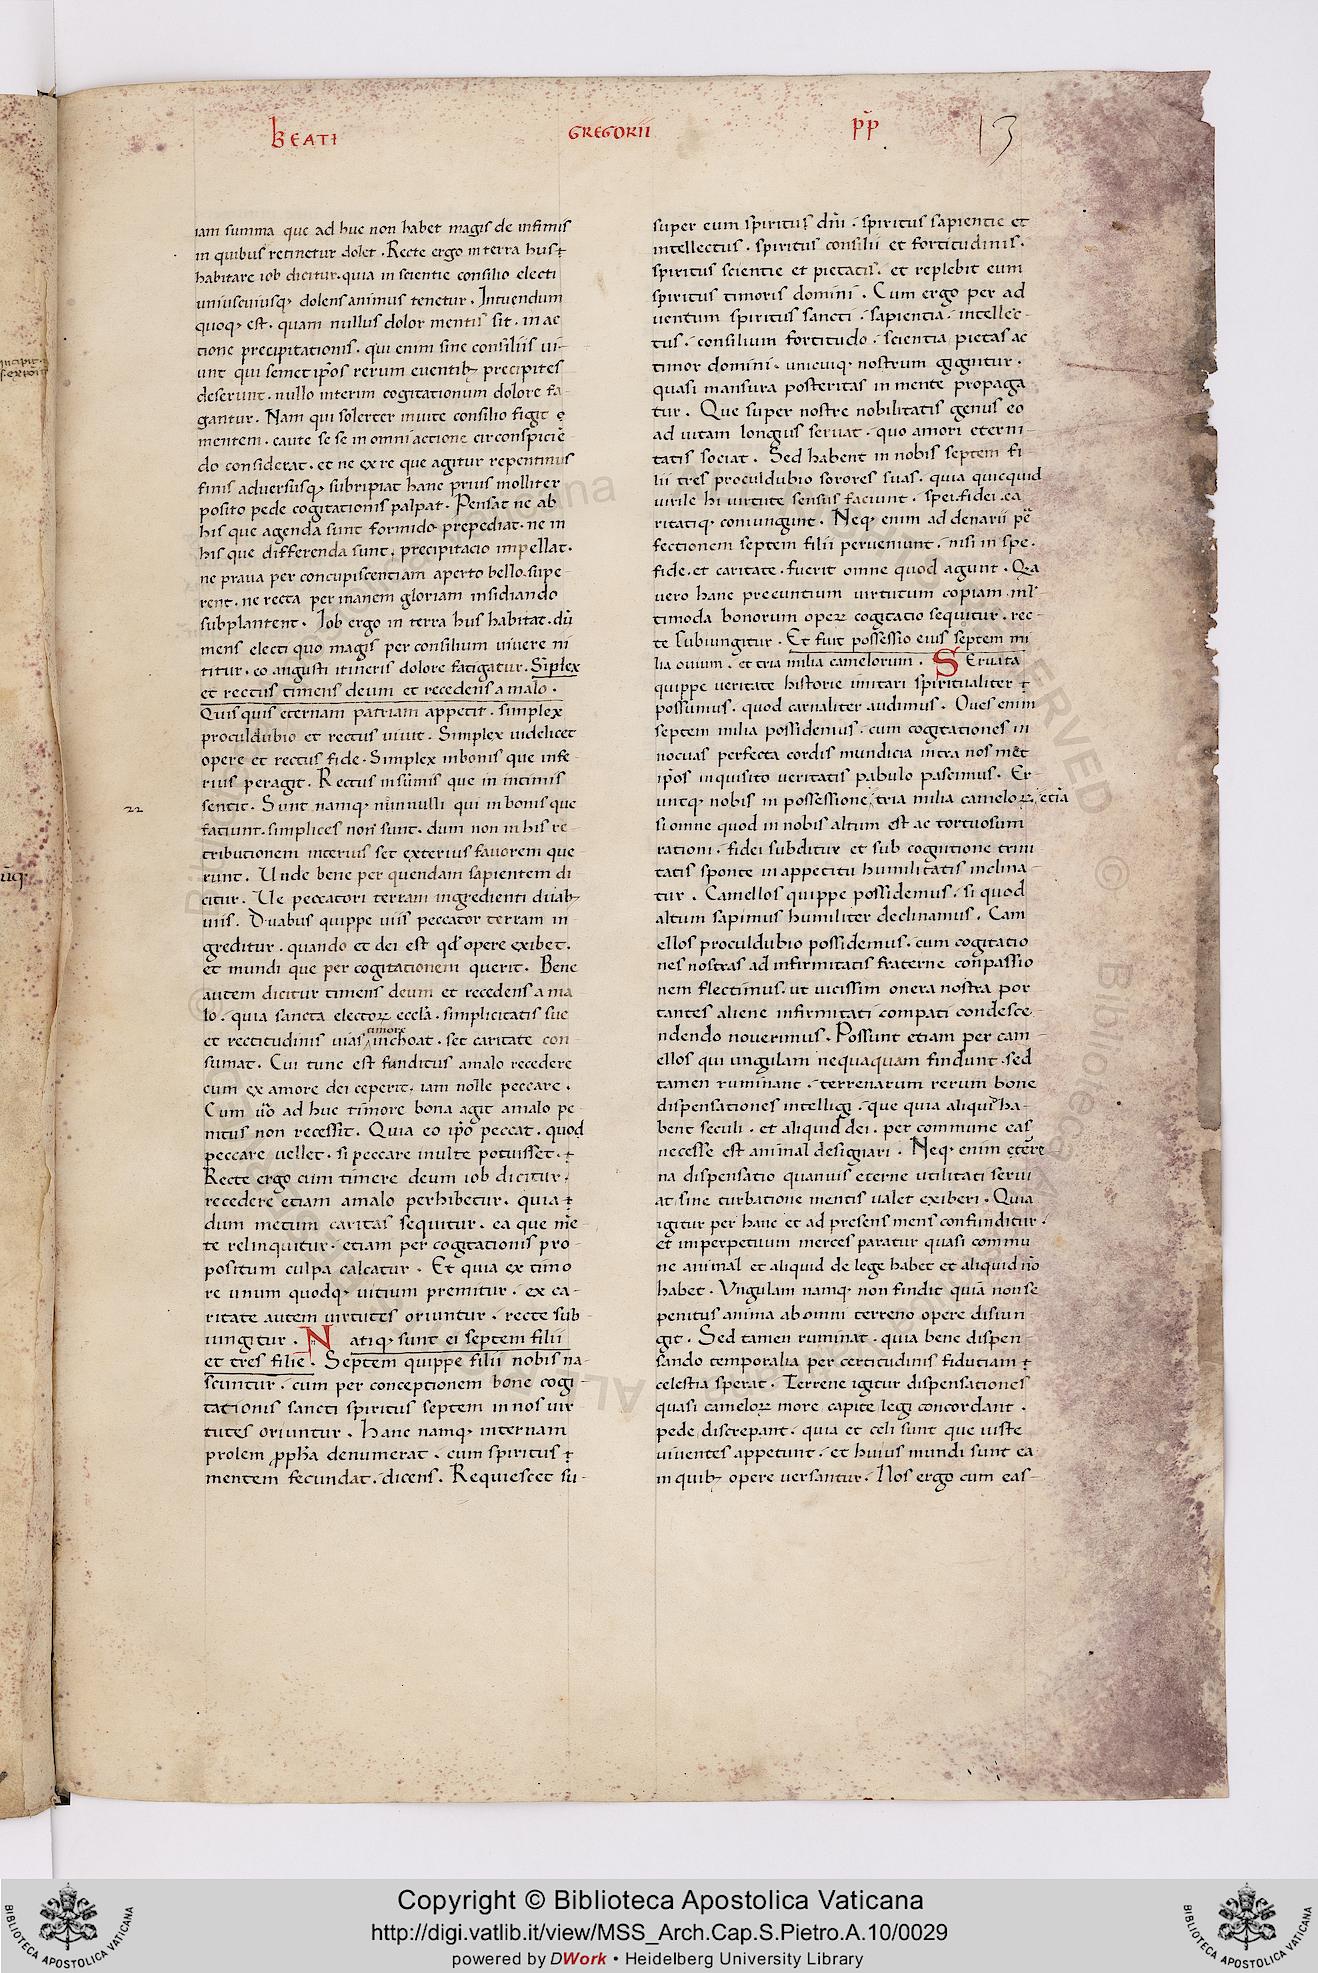 BEATI GREGORII p̄p 13
iam summa que ad huc non habet magis de infimis
in quibus retinetur dolet . Recte ergo in terra hus
habitare iob dicitur . quia in scientie consilio electi
uniuscuiusq; dolens animus tenetur . Intuendum
quoq; est . quam nullus dolor mentis sit . in ac
tione precipitationis . qui enim sine consiliis ui-
unt qui semet ip̄os rerum euentib; precipites
deserunt . nullo interim cogitationum dolore fa-
gantur . Nam qui solerter in uite consilio figit
mentem . caute se se in omni actione circonspiciē
do considerat . et ne ex re que agitur repentinus
finis aduersusq; subripiat hanc prius molliter
posito pede cogitationis palpat . Pensat ne ab
his que agenda sunt formido prepediat . ne in
his que differenda sunt . precipitacio impellat .
ne praua per concupiscentiam aperto bello . supe-
rent . ne recta per inanem gloriam insidiando
subplantent . Iob ergo in terra hus habitat . dū
mens electi quo magis per consilium uiuere ni
titur . eo angusti itineris dolore fatigatur . Siplex
et rectus timens deum et recedens a malo .
Quis quis eternam patriam appetit . simplex
proculdubio et rectus uiuit . Simplex uidelicet
opere et rectus fide . Simplex in bonis que infe-
rius peragit . Rectus in sūmis que in intimis
22
sentit . Sunt namq; nūnnulli qui in bonis que
faciunt . simplices non sunt . dum non in his re-
tributionem interius set exterius fauorem que
runt . Unde bene per quendam sapientem di
citur . Ue peccatori terram ingredienti duab;
uiis . Duabus quippe uiis peccator terram in-
greditur . quando et dei est qd̄ opere exibet .
et mundi que per cogitationem querit . Bene
autem dicitur timens deum et recedens a ma
lo . quia sancta electoꝝ ecclā . simplicitatis sue
et rectitudinis uias timore inchoat . set caritate con-
sumat . Cui tunc est funditus a malo recedere
cum ex amore dei ceperit . iam nolle peccare .
Cum ūo ad huc timore bona agit a malo pe-
nitus non recessit . Quia eo ip̄o peccat . quod
peccare uellet . si peccare inulte potuisset .
Recte ergo cum timere deum iob dicitur .
recedere etiam a malo perhibetur . quia
dum metum caritas sequitur . ea que mē-
te relinquitur . etiam per cogitationis pro-
positum culpa calcatur . Et quia ex timo
re unum quodq; uitium premitur . ex ca-
ritate autem uirtutes oriuntur . recte sub
iungitur . Natiq; sunt ei septem filii
et tres filie . Septem quippe filii nobis na-
scuntur . cum per conceptionem bone cogi-
tationis sancti spiritus septem in nos uir
tutes oriuntur . Hanc namq; internam
prolem pp̄ha denumerat . cum spiritus
mentem fecundat . dicens . Requiescet su-
super eum spiritus dn̄i . spiritus sapientie et
intellectus . spiritus consilii et fortitudinis .
spiritus scientie et pietatis . et replebit eum
spiritus timoris domini . Cum ergo per ad
uentum spiritus sancti . sapientia . intellec-
tus . consilium fortitudo . scientia pietas ac
timor domini . unicuiq; nostrum gignitur .
quasi mansura posteritas in mente propaga
tur . Que super nostre nobilitatis genus eo
ad uitam longius seruat . quo amori eterni-
tatis sociat . Sed habent in nobis septem fi
lii tres proculdubio sorores suas . quia quicquid
uirile hi uirtute sensus faciunt . spei . fidei . ca
ritatiq; coniungunt . Neq; enim ad denarii pē
fectionem septem filii perueniunt . nisi in spe .
fide . et caritate . fuerit omne quod agunt . Q̄a
uero hanc precuntium uirtutum copiam . ml̄
timoda bonorum opeꝝ cogitacio sequitur . rec-
te subiungitur . Et fuit possessio eius septem mi
lia ouium . et tria milia camelorum . Seruata
quippe ueritate historie imitari spiritualiter
possumus . quod carnaliter audimus . Oues enim
septem milia possidemus . cum cogitationes in
nocuas perfecta cordis mundicia intra nos mēt
ip̄os inquisito ueritatis pabulo pascimus . Er-
untq; nobis in possessione tria milia cameloꝝ . etiā
si omne quod in nobis altum est ac tortuosum
rationi . fidei subditur et sub cognitione trini
tatis sponte in appetitu humilitatis inclina-
tur . Camellos quippe possidemus . si quod
altum sapimus humiliter declinamus . Cam
ellos proculdubio possidemus . cum cogitatio
nes nostras ad infirmitatis fraterne conpassio
nem flectimus . ut uicissim onera nostra por
tantes aliene infirmitati compati condesce-
ndendo nouerimus . Possunt etiam per cam-
ellos qui ungulam nequaquam findunt . sed
tamen ruminant . terrenarum rerum bone
dispensationes intelligi . que quia aliquid ha-
bent seculi . et aliquid dei . per commune eas
necesse est animal designari . Neq; enim terre
na dispensatio quamuis eterne utilitati serui
at . sine turbatione mentis ualet exiberi . Quia
igitur per hanc et ad presens mens confunditur .
et inperpetuum merces paratur quasi commu
ne animal et aliquid de lege habet et aliquid nō
habet . Ungulam namq; non findit quia non se
penitus anima ab omni terreno opere disiun
git . Sed tamen ruminat . quia bene dispen-
sando temporalia per certitudinis fiduciam
celestia sperat . Terrene igitur dispensationes
quasi cameloꝝ more capite legi concordant .
pede discrepant . quia et celi sunt que iuste
uiuentes appetunt . et huius mundi sunt ea
in quib; opere uersantur . Nos ergo cum eas-
Copyright © Biblioteca Apostolica Vaticana
http://digi.vatlib.it/view/MSS_Arch.Cap.S.Pietro.A.10/0029
powered by DWork • Heidelberg University Library
BIBLIOTECA APOSTOLICA VATICANA
BIBLIOTECA APOSTOLICA VATICANA